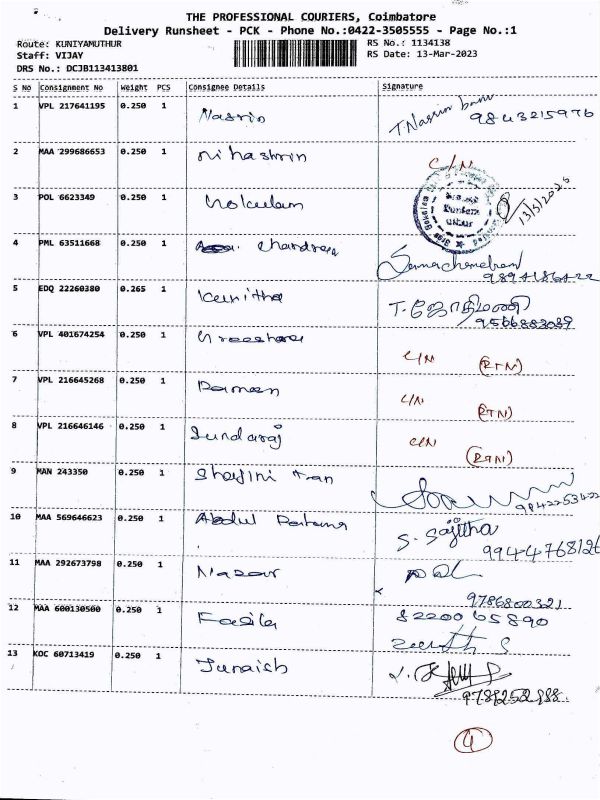 THE PROFESSIONAL COURIERS, Coimbatore
Delivery Runsheet - PCK - Phone No.:0422-3505555 - Page No.:1
Route: KUNIYAMUTHUR
RS No.: 1134138
Staff: VIJAY
RS Date: 13-Mar-2023
DRS No.: DCJB113413801
S No Consignment No Weight PCS Consignee Details Signature
1 VPL 217641195 0.250 1 Nasrin T. Nasrin banu 9843215976
2 MAA 299686653 0.250 1 C/N
3 POL 6623349 0.250 1 Gokulam
4 PML 63511668 0.250 1 Chandra
5 EDQ 22260380 0.265 1 Kavitha T. ஜோதிமணி
6 VPL 401674254 0.250 1 C/N (RTN)
7 VPL 216645268 0.250 1 Raman C/N (RTN)
8 VPL 216646146 0.250 1 Sundaraj C/N (RTN)
9 MAN 243350 0.250 1 9842253422
10 MAA 569646623 0.250 1 Abdul Rahman S. Sajitha
9944768126
11 MAA 292673798 0.250 1 9786800321
12 MAA 600130500 0.250 1 Fasila 8220065890
13 KOC 60713419 0.250 1 Junaish
4